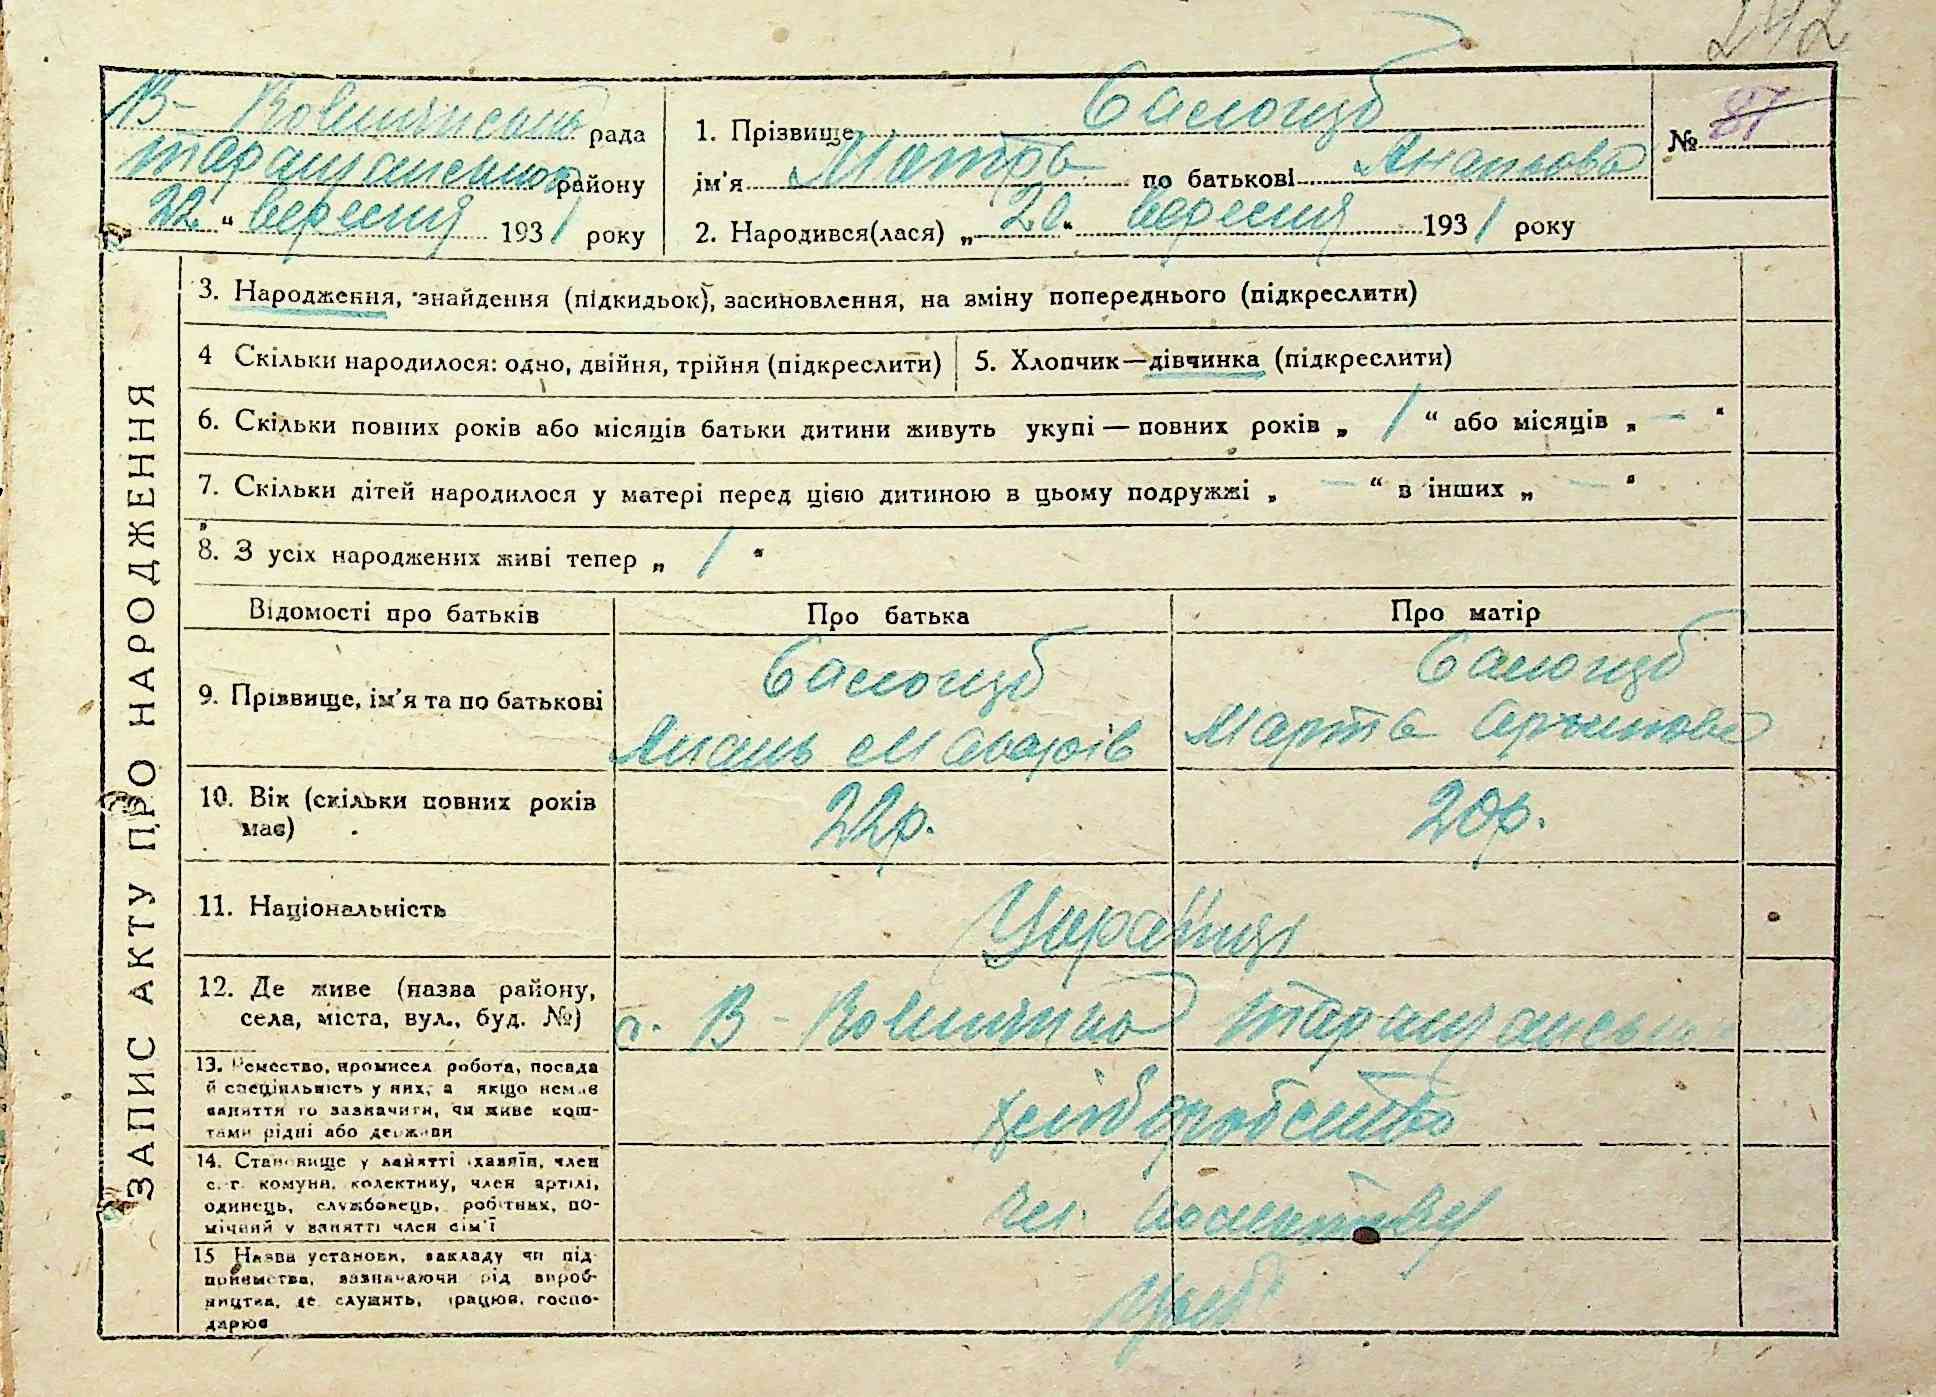 242
В- Вовнянська рада
Таращанського району
"22" вересня 1931 року
1. Прізвище Салогуб
ім'я Мотря по батькові Ананова
№ 87
2. Народився(лася) „20“ вересня 1931 року
ЗАПИС АКТУ ПРО НАРОДЖЕННЯ
3. Народження, знайдення (підкидьок), засиновлення, на зміну попереднього (підкреслити)
4 Скільки народилося: одно, двійня, трійня (підкреслити)
5. Хлопчик—дівчинка (підкреслити)
6. Скільки повних років або місяців батьки дитини живуть укупі — повних років „ 1 “ або місяців „ — “
7. Скільки дітей народилося у матері перед цією дитиною в цьому подружжі „ — “ в інших „ — “
8. З усіх народжених живі тепер „ 1 “
Відомості про батьків
Про батька
Про матір
9. Прізвище, ім'я та по батькові
Салогуб
Салогуб
Марта Архипова
10. Вік (скільки повних років
має)
22р.
20р.
11. Національність
Українці
12. Де живе (назва району,
села, міста, вул., буд. №)
с. В-Вовнянка Таращанськ
13. Ремество, промисел робота, посада
й спеціяльність у них, а якщо немає
заняття то зазначити, чи живе кош-
тами рідні або держави
хліборобство
14. Становище у занятті хазяїн, член
с. г. комуни, колективу, член артілі,
одинець, службовець, робітник, по-
мічний у занятті член сім'ї
чл. колективу
15 Назва установи, закладу чи під-
приємства, зазначаючи рід вироб-
ництва, де служить, працює, госпо-
дарює